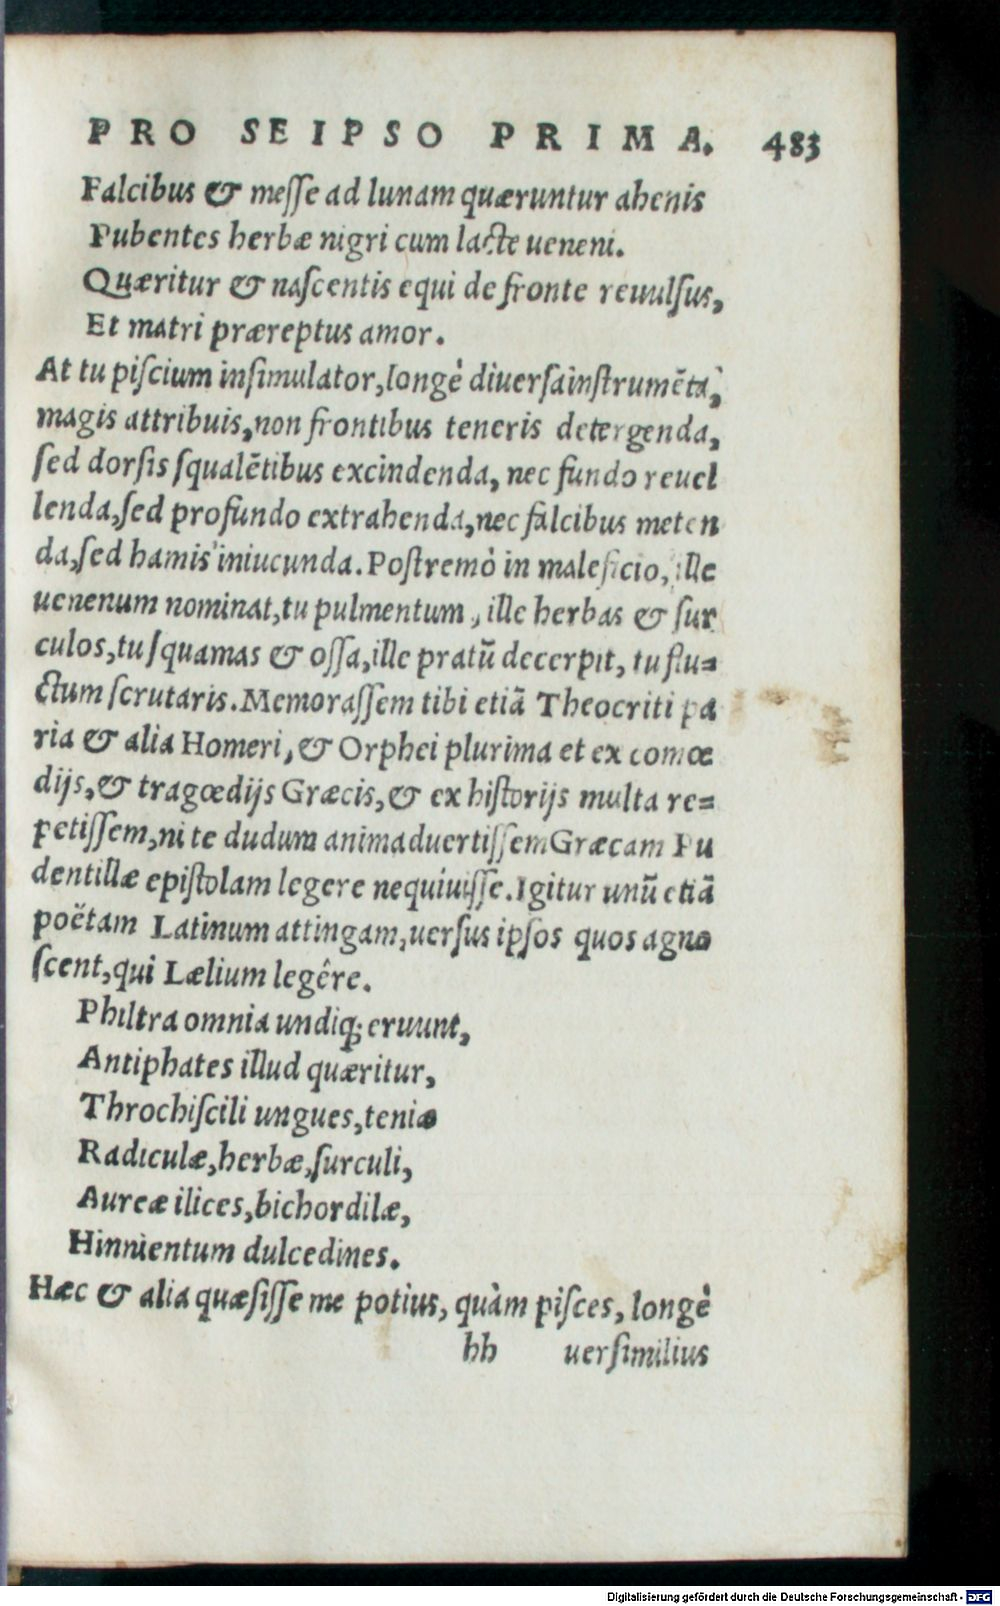 PRO SEIPSO PRIMA. 483
Falcibus & messe ad lunam quæruntur ahenis
Pubentes herbæ nigri cum lacte ueneni.
Quæritur & nascentis equi de fronte reuulsus,
Et matri præreptus amor.
At tu piscium insimulator, longè diuersa instrumēta,
magis attribuis, non frontibus teneris detergenda,
sed dorsis squalētibus excindenda, nec fundo reuel
lenda, sed profundo extrahenda, nec falcibus meten
da, sed hamis iniucunda. Postremò in maleficio, ille
uenenum nominat, tu pulmentum, ille herbas & sur
culos, tu squamas & ossa, ille pratū decerpit, tu flu=
ctum scrutaris. Memorassem tibi etiā Theocriti pa
ria & alia Homeri, & Orphei plurima et ex comœ
dijs, & tragœdijs Græcis, & ex historijs multa re=
petissem, ni te dudum animaduertissem Græcam Pu
dentillæ epistolam legere nequiuisse. Igitur unū etiā
poëtam Latinum attingam, uersus ipsos quos agno
scent, qui Lælium legêre.
Philtra omnia undiq; eruunt,
Antiphates illud quæritur,
Throchiscili ungues, teniæ
Radiculæ, herbæ, surculi,
Aureæ ilices, bichordilæ,
Hinnientum dulcedines.
Hæc & alia quæsisse me potius, quàm pisces, longè
hh uersimilius
Digitalisierung gefördert durch die Deutsche Forschungsgemeinschaft - DFG